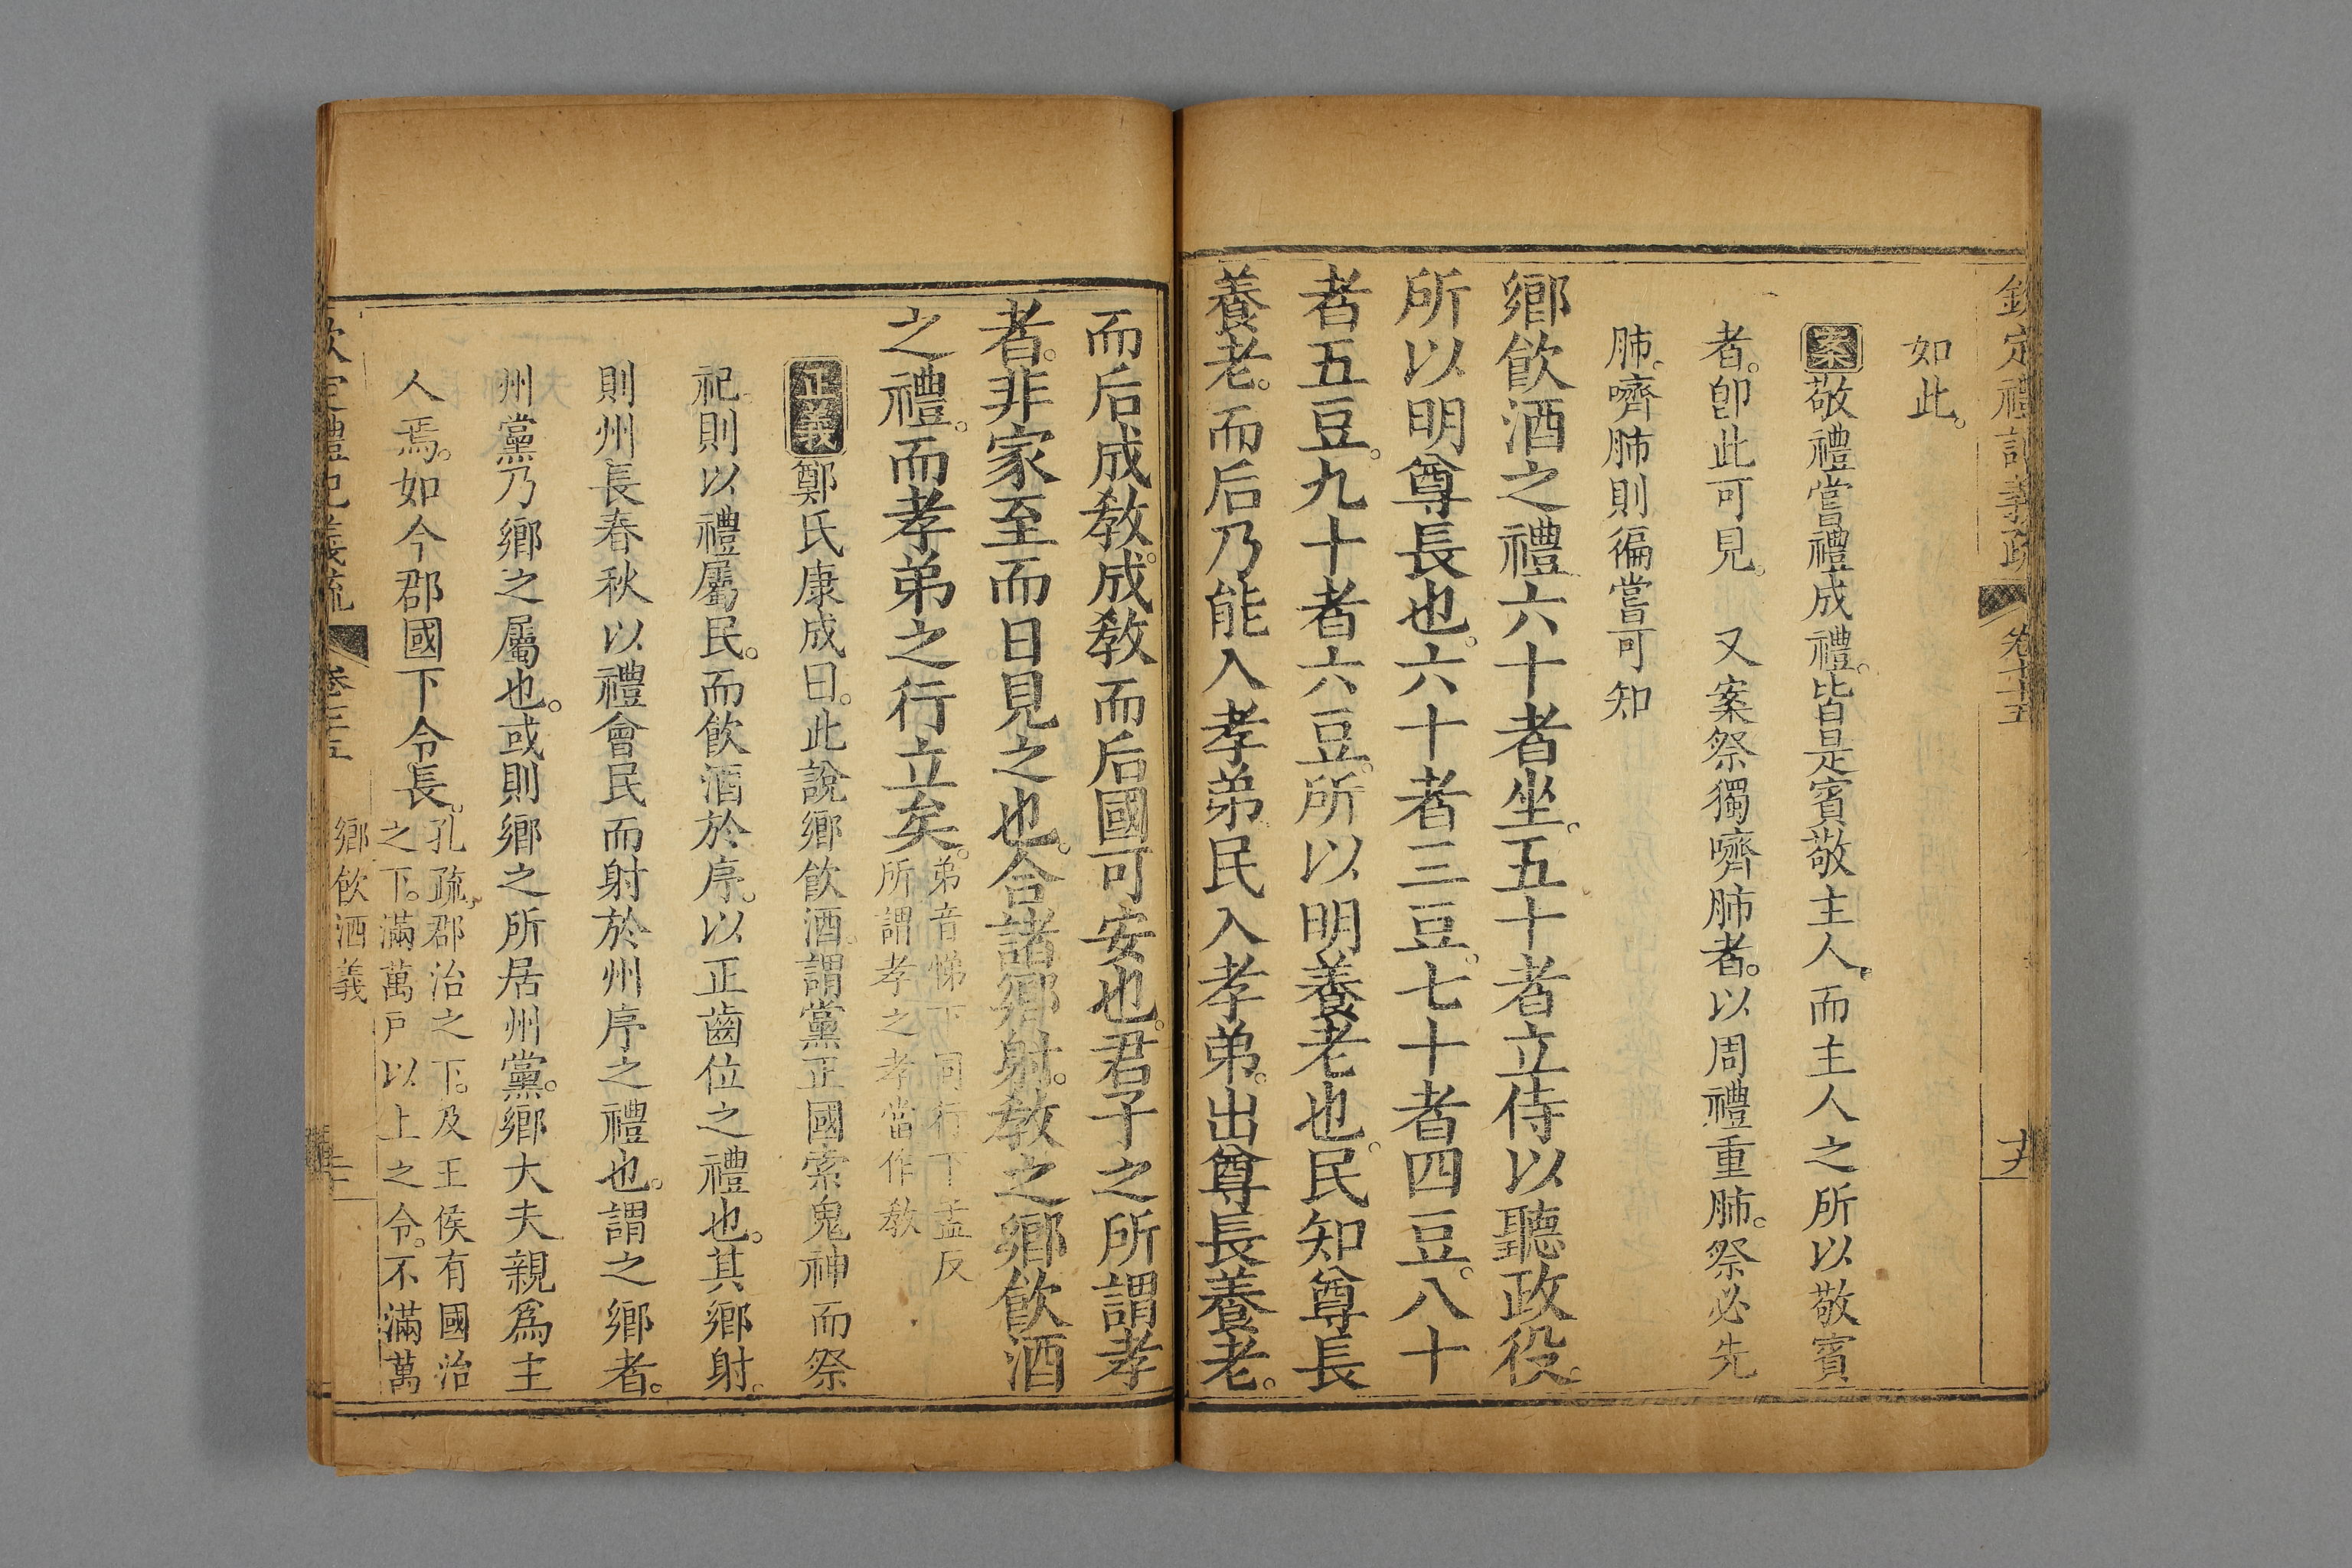 欽定禮記義疏 卷七十五
如此。
案敬禮嘗禮成禮。皆是賓敬主人。而主人之所以敬賓
者。卽此可見。又案祭獨嚌肺者。以周禮重肺。祭必先
肺。嚌肺則徧嘗可知
鄉飮酒之禮六十者坐。五十者立侍以聽政役。
所以明尊長也。六十者三豆。七十者四豆。八十
者五豆。九十者六豆。所以明養老也。民知尊長
養老。而后乃能入孝弟民入孝弟。出尊長養老。
而后成教。成教而后國可安也。君子之所謂孝
者。非家至而日見之也。合諸鄉射。教之鄉飮酒
之禮。而孝弟之行立矣。弟音悌下同行下孟反
所謂孝之孝當作教
正義鄭氏康成曰。此說鄉飮酒。謂黨正國索鬼神而祭
祀。則以禮屬民。而飮酒於序。以正齒位之禮也。其鄉射。
則州長春秋以禮會民而射於州序之禮也。謂之鄉者。
州黨乃鄉之屬也。或則鄉之所居州黨。鄉大夫親爲主
人焉。如今郡國下令長。孔疏。郡治之下。及王侯有國治
之下。滿萬戸以上之令。不滿萬
欽定禮記義疏 鄉飮酒義